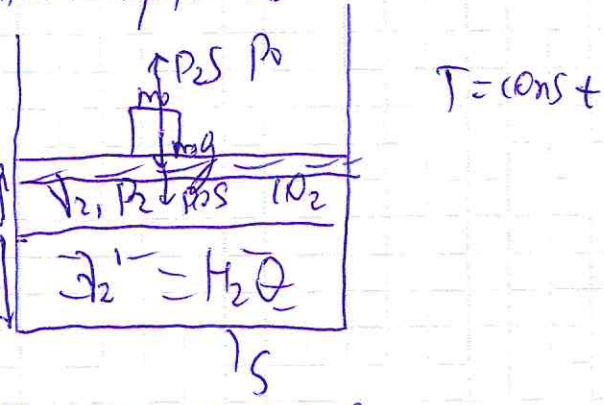 P₂S P₀
m₀
T = const
m₀g
V₂, P₂ P₀S CO₂
H₂O
S